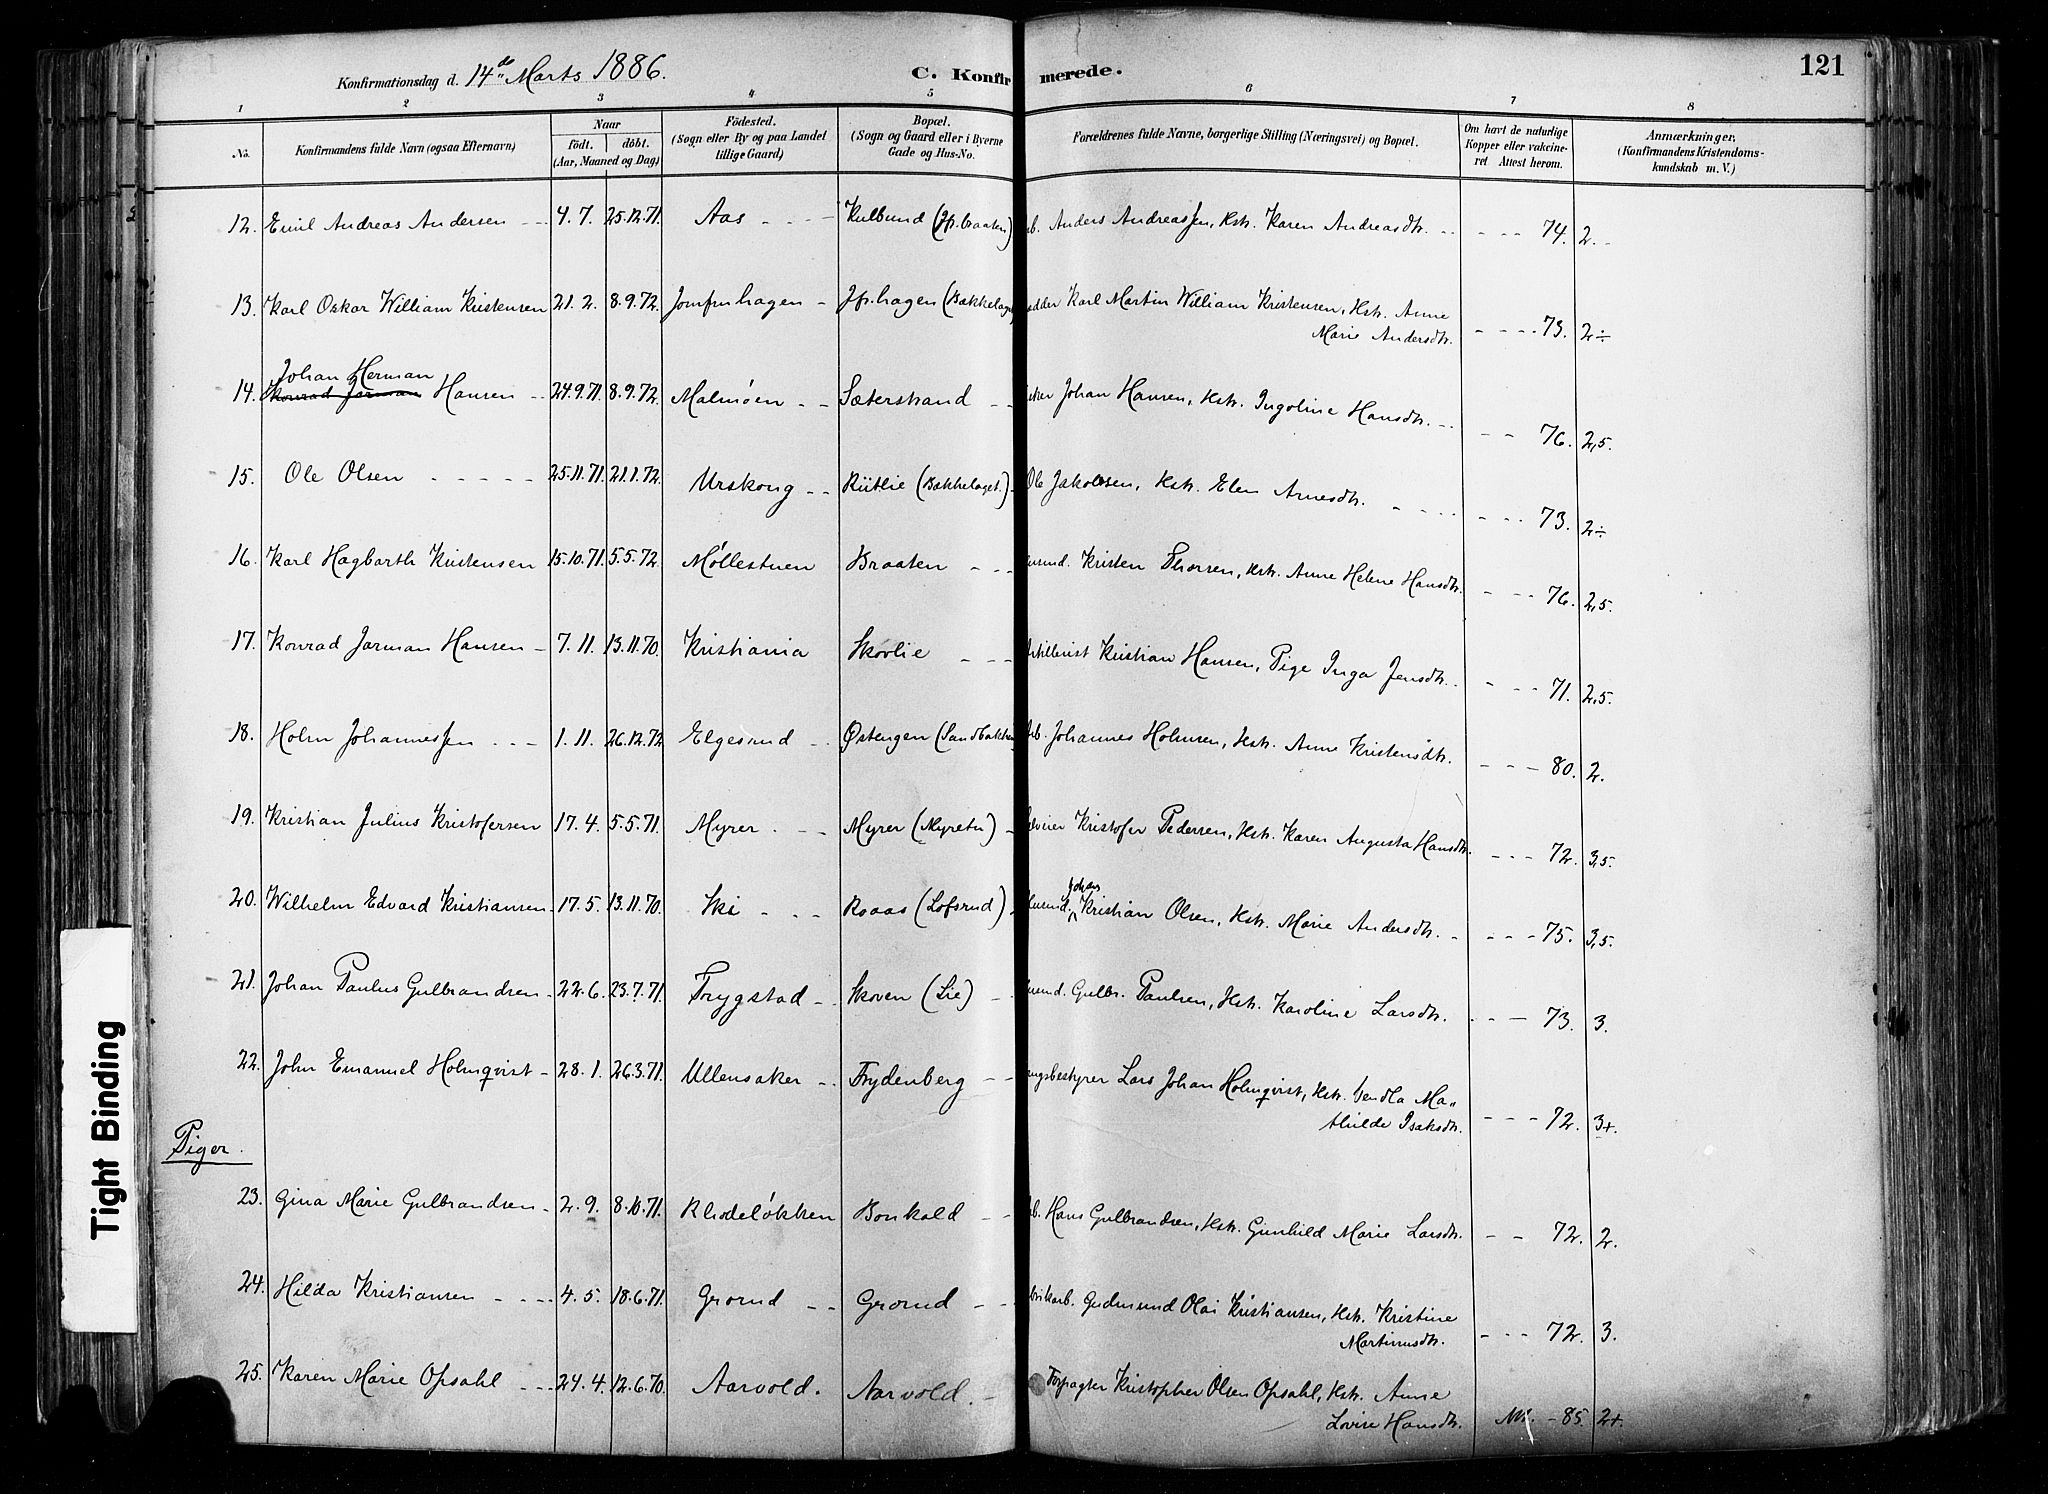 Konfirmationsdag d. 14de Marts 1886.
C. Konfirmerede.
121
1 2 3 4 5 6 7 8
No.
Konfirmandens fulde Navn (ogsaa Efternavn)
Naar
födt. döbt.
(Aar, Maaned og Dag)
Födested.
(Sogn eller By og paa Landet
tillige Gaard)
Bopæl.
(Sogn og Gaard eller i Byerne
Gade og Hus-No.
Forældrenes fulde Navne, borgerlige Stilling (Næringsvei) og Bopæl.
Om havt de naturlige
Kopper eller vakcine-
ret Attest herom.
Anmærkninger,
(Konfirmandens Kristendoms-
kundskab m. V.)
12. Emil Andreas Andersen 4.7. 25.12.71. Aas Kulbund (Jfr.braaten) Anders Andreassen, Kstr. Karen Andreasdtr. 74. 2.
13. Karl Oskar William Kristensen 21.2. 8.9.72. Jomfruhagen Jfr.hagen (Bækkelaget) Karl Martin William Kristensen, Kstr. Anne
Marie Andersdtr. 73. 2÷
Johan Herman
14. Konrad Jarman Hansen 24.9.71. 8.9.72. Malmöen Sæterstrand Johan Hansen, Kstr. Ingoline Hansdtr. 76. 2,5.
15. Ole Olsen 25.11.71. 21.1.72. Urskoug Rütlie (Bækkelaget.) Ole Jakobsen, Kstr. Elen Arnesdtr. 73. 2÷
16. Karl Hagbarth Kristensen 15.10.71. 5.5.72. Möllestuen Braaten Kristen Thorsen, Kstr. Anne Helene Hansdtr. 76. 2,5.
17. Konrad Jarman Hansen 7.11. 13.11.70. Kristiania Skovlie Kristian Hansen, Pige Inga Jensdtr. 71. 2,5.
18. Holm Johannessen 1.11. 26.12.72 Elgesund Østengen (Sandbakken) Johannes Holmsen, Kstr. Anne Kristensdtr. 80. 2.
19. Kristian Julius Kristofersen 17.4. 5.5.71. Myrer Myrer (Myretu) Kristofer Pedersen, Kstr. Karen Augusta Hansdtr. 72. 3,5.
20. Wilhelm Edvard Kristiansen 17.5. 13.11.70. Ski Raaas (Lofsrud) Johan Kristian Olsen, Kstr. Marie Andersdtr. 75. 3,5.
21. Johan Paulus Gulbrandsen 22.6. 23.7.71. Trygstad Skoven (Lie) Gulbr. Paulsen, Kstr. Karoline Larsdtr. 73. 3.
22. John Emanuel Holmqvist 28.1. 26.3.71. Ullensaker Frydenberg Lars Johan Holmqvist, Kstr. Vendla Ma-
thilde Isaksdtr. 72. 3+.
Piger.
23. Gina Marie Gulbrandsen 2.9. 8.10.71. Rhodelökken Bonkald Hans Gulbrandsen, Kstr. Gunhild Marie Larsdtr. 72. 2.
24. Hilda Kristiansen 4.5. 18.6.71. Gjrorud Grorud Gudmund Olai Kristiansen, Kstr. Kristine
Martinusdtr. 72. 3.
25. Karen Marie Opsahl 24.4. 12.6.70. Aarvold. Aarvold. Forpagter Kristopher Olsen Opsahl, Kstr. Anne
Lovise Hansdtr. 85. 2+.
Tight Binding